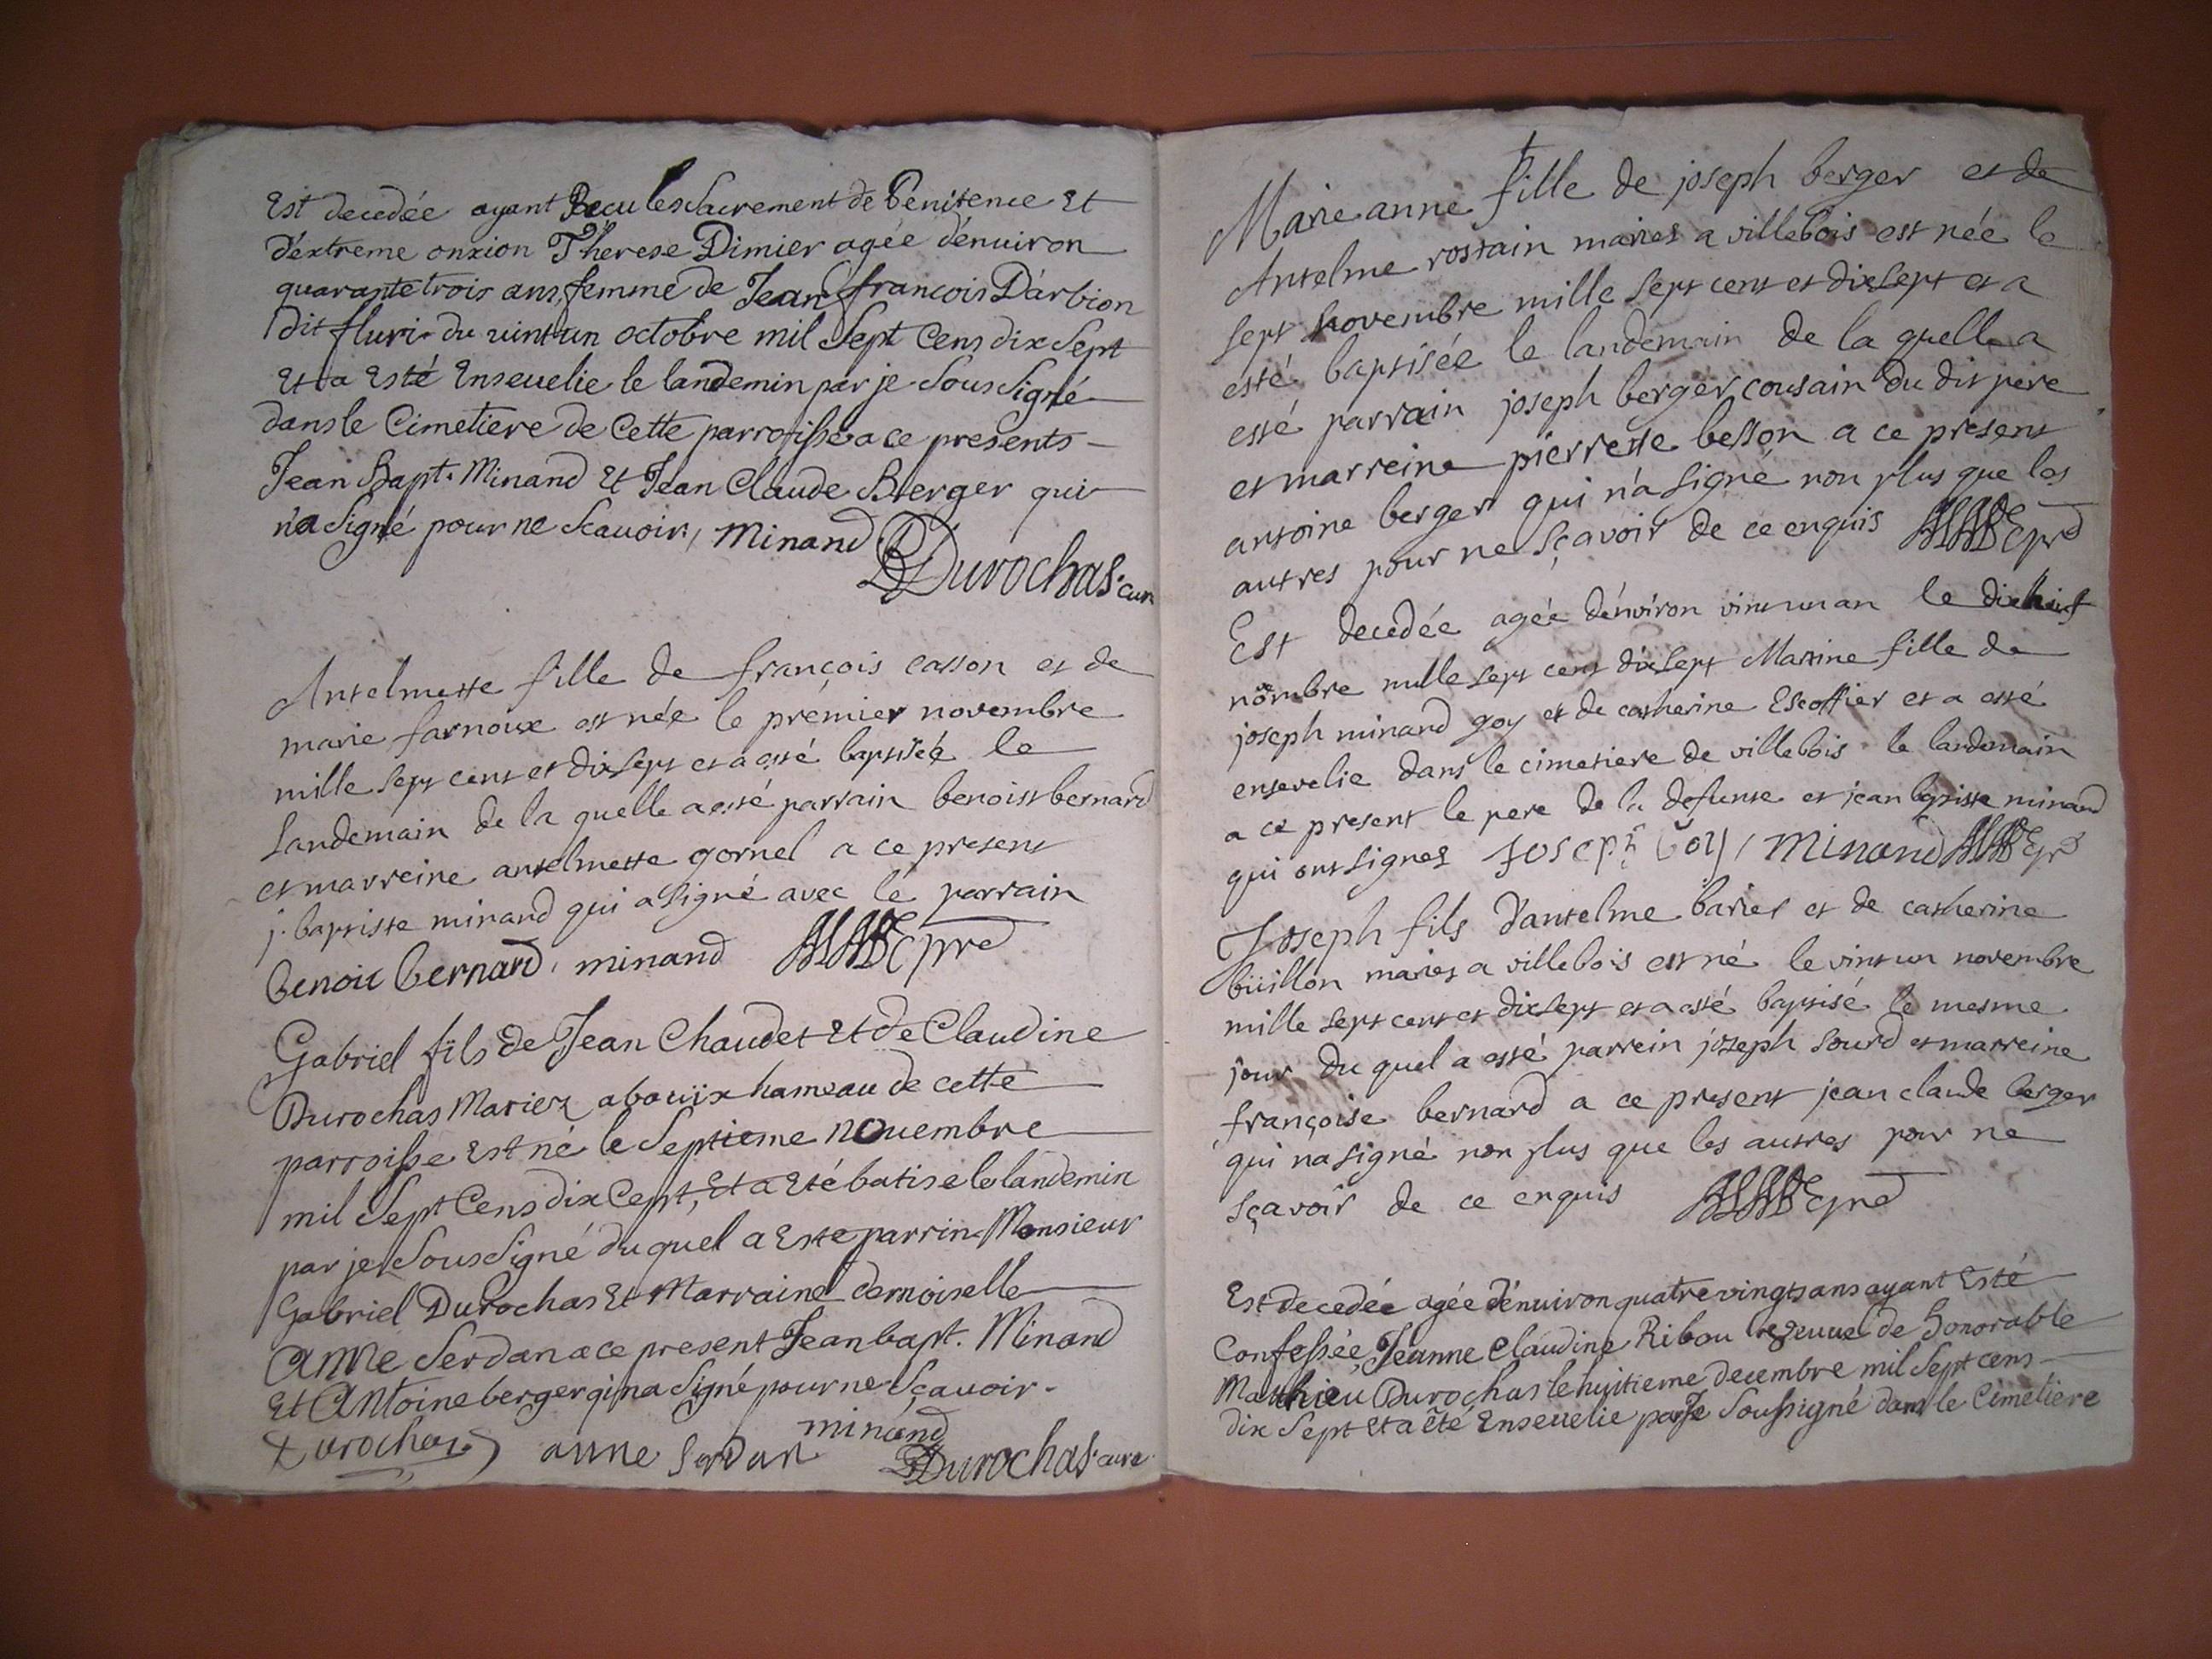 Est decedée ayant Recu les Sacrement de Penitence Et
d'extreme onxion Therese Dimier agée d'enuiron
quarante trois ans, femme de Jean francois D'arbion
dit fluri du uint un octobre mil Sept Cens dix Sept
Et a Esté Enseuelie le landemin par je Sous Signé
dans le Cimetiere de Cette parroisse a ce presents
Jean Bapt. Minand Et Jean Claude Berger qui
n'a Signé pour ne Scauoir, Minand
Durochas. cur
Antelmette fille de françois casson et de
marie farnoux est née le prémier novembre
mille sept cent et dixsept et a esté baptisée le
landemain de la quelle a esté parrain benoist bernard
et marreine antelmette gornel a ce present
j. baptiste minand qui a signé avec le parrain
benoit bernard, minand pre
Gabriel fils de Jean Chaudet Et de Claudine
Durochas Mariez a bouïx hameau de cette
parroisse Est né le Septieme nouembre
mil Sept Cens dix Cept, Et a Eté batise le landemin
par je Sous Signé du quel a Este parrin Monsieur
Gabriel Durochas Et Marraine demoiselle
Anne Serdan a ce present Jean bapt. Minand
Et Antoine berger qi na Signé pour ne Sçauoir.
Durochas anne Serdan minand
Durochas. cure
Marie anne fille de joseph berger et de
Antelme rostain mariés a villebois est née le
sept novembre mille sept cent et dixsept et a
esté baptisée le landemain de la quelle a
esté parrain joseph berger cousain du dit pere
et marreine pierrette besson a ce present
antoine berger qui n'a signé non plus que les
autres pour ne sçavoir de ce enquis pre
Est decedée agée d'environ vint un an le dixhuit
nõmbre mille sept cent dixsept Marine fille de
joseph minand goy et de catherine Escoffier et a esté
ensevelie dans le cimetiere de villebois le landemain
a ce present le pere de la defunte et jean baptiste minand
qui ont signes joseph Goy, Minand pre
Joseph fils d'antelme bariet et de catherine
büillon mariés a villebois est né le vint un novembre
mille sept cent et dixsept et a esté baptisé le mesme
jour du quel a esté parrein joseph sourd et marreine
françoise bernard a ce present jean claude berger
qui na signé non plus que les autres pour ne
sçavoir de ce enquis pre
Est decedée agée d'enuiron quatre vingts ans ayant Esté
Confessée, Jeanne Claudine Ribou veuue de honorable
Matthieu Durochas le huitieme decembre mil Sept cens
dix Sept Et a été Enseuelie par Je Soussigné dans le Cimetiere